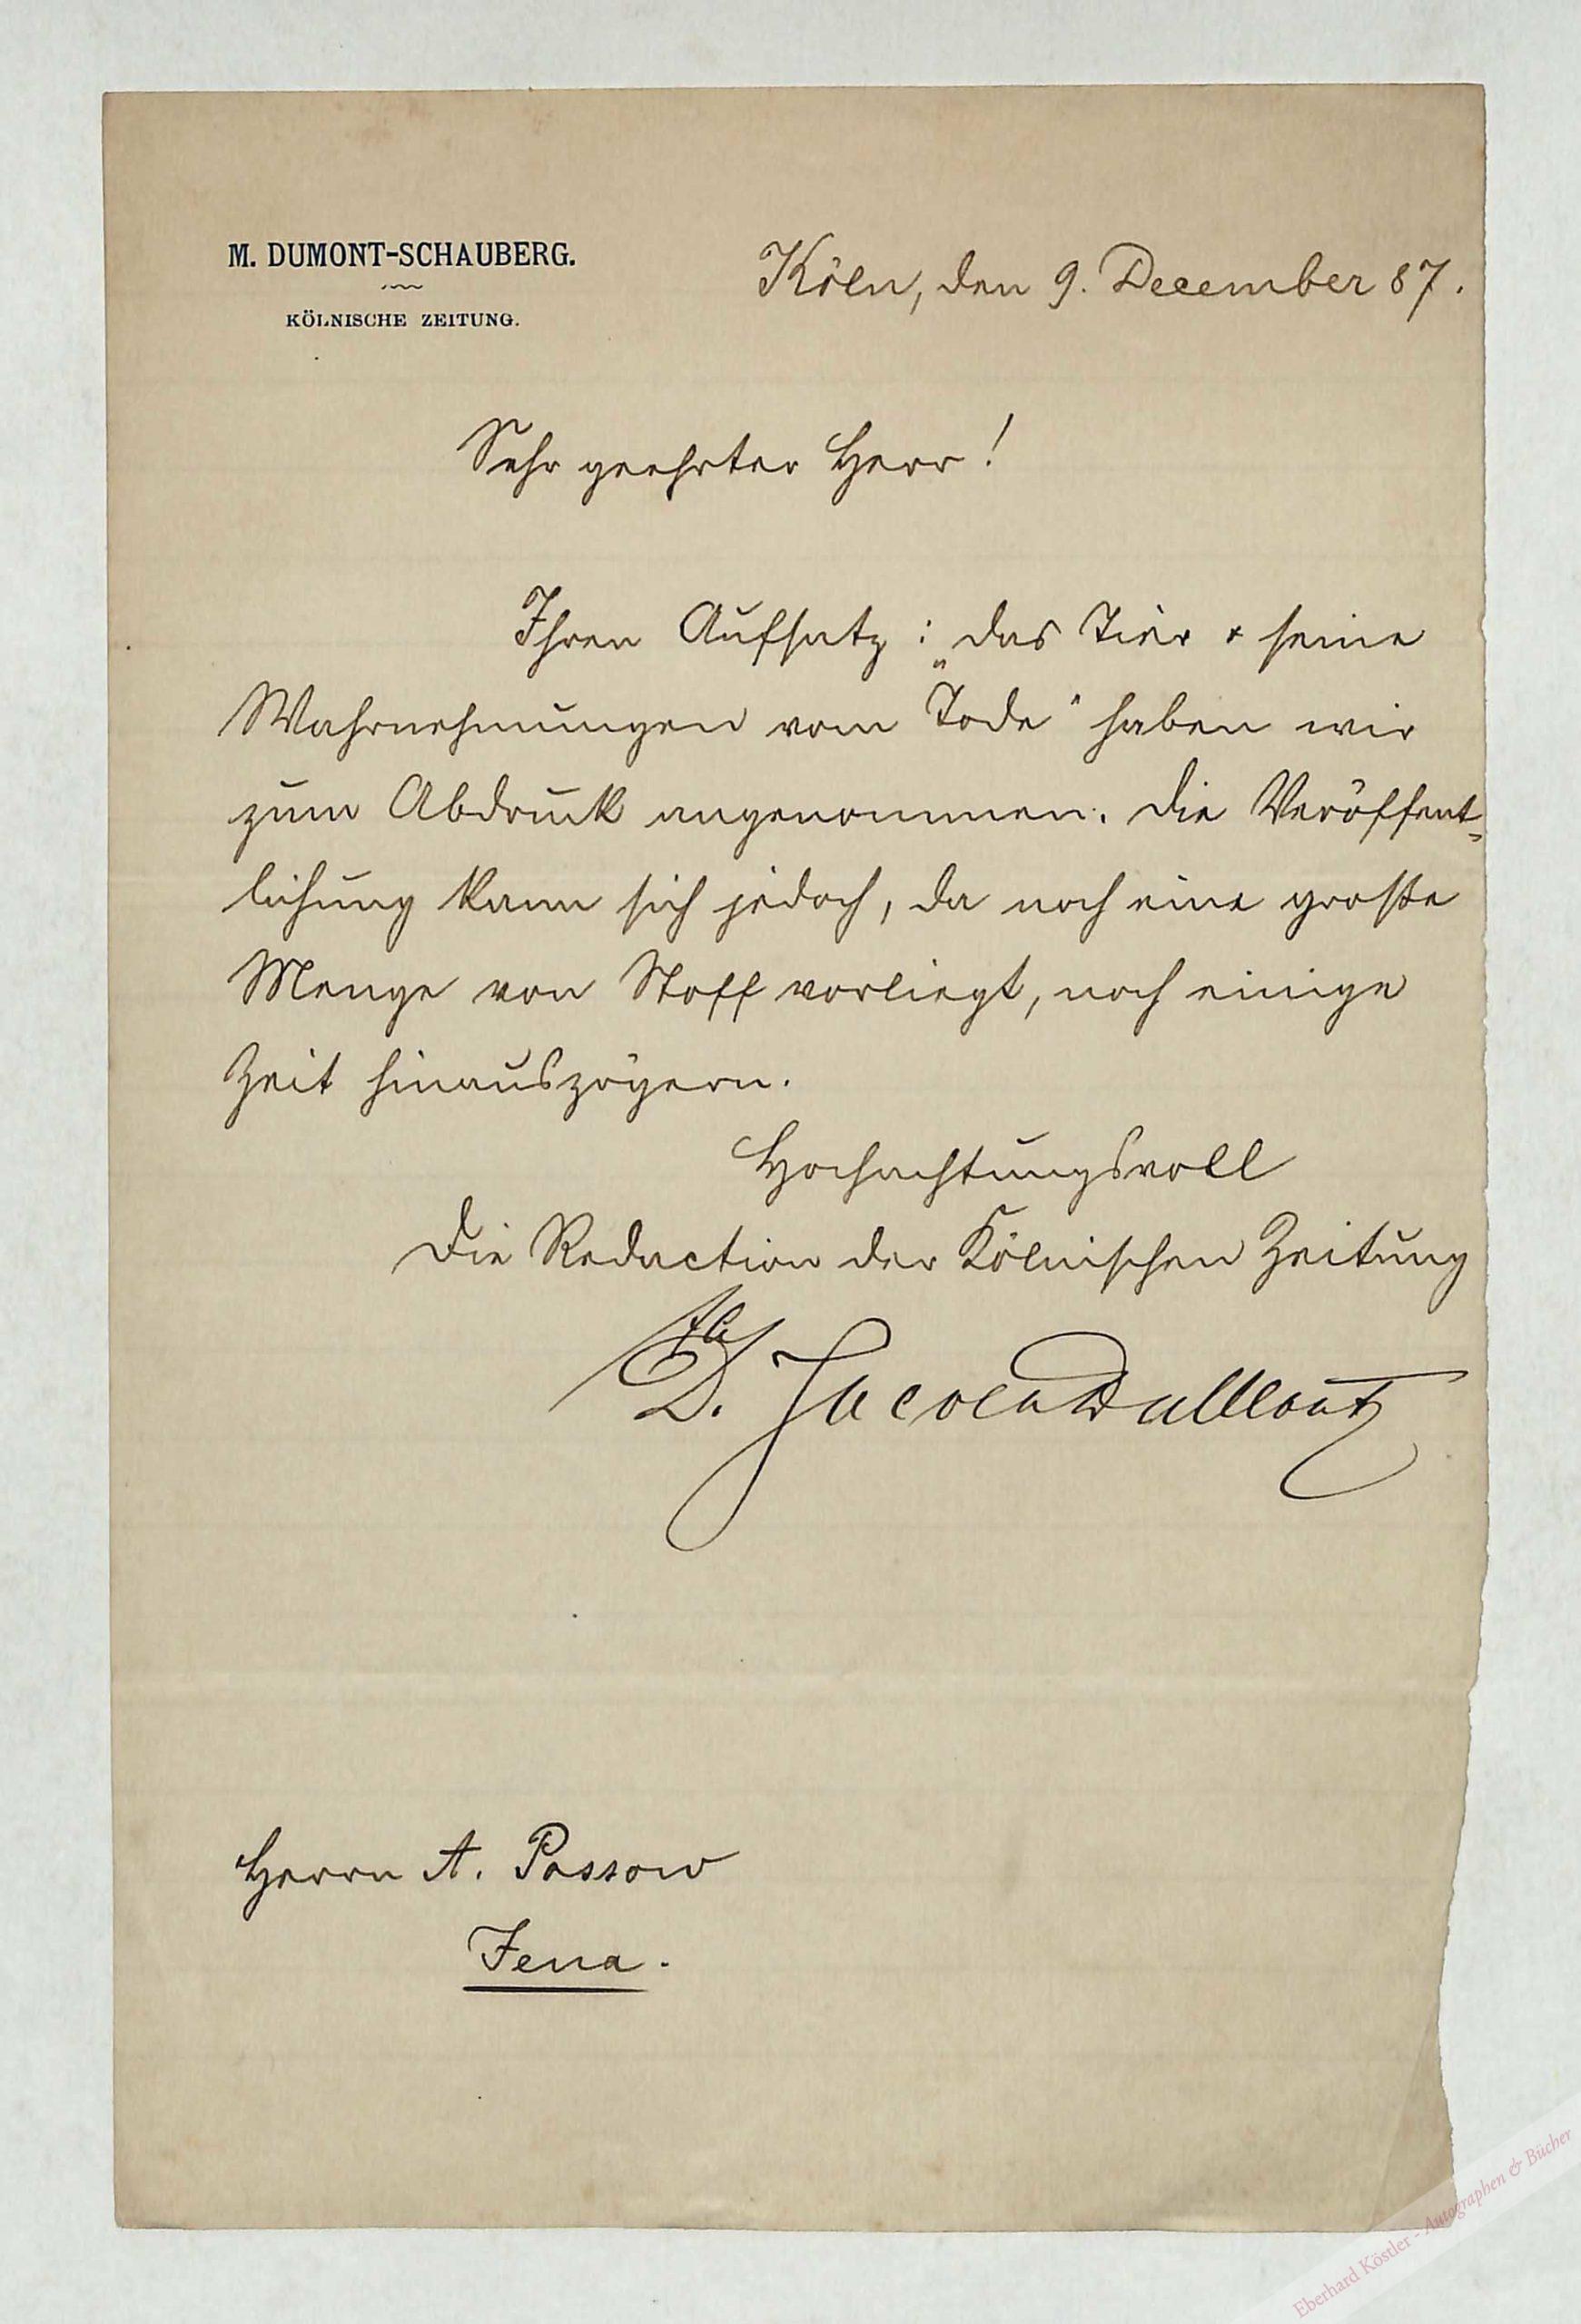 M. DUMONT-SCHAUBERG.
KÖLNISCHE ZEITUNG.
Köln, den 9. December 87.
Sehr geehrter Herr!
Ihren Aufsatz: „das Tier & seine
Wahrnehmungen vom Tode“ haben wir
zum Abdruck angenommen. Die Veröffent-
lichung kann sich jedoch, da noch eine große
Menge von Stoff vorliegt, noch einige
Zeit hinauszögern.
Hochachtungsvoll
Die Redaction der Kölnischen Zeitung
DuMont
Herrn A. Passow
Jena.
Eberhard Köstler - Autographen & Bücher